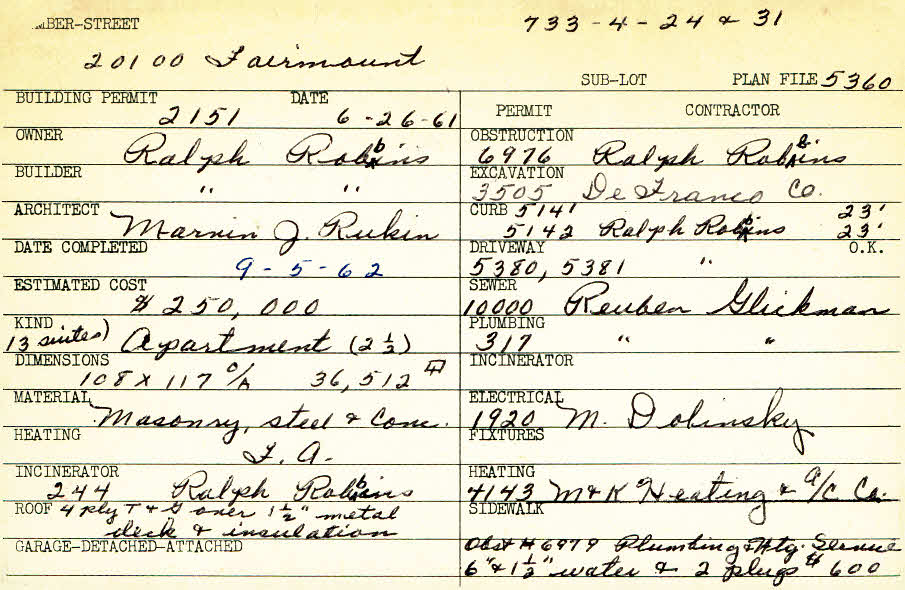 MBER-STREET
733-4-24 & 31
20100 Fairmount
SUB-LOT PLAN FILE 5360
BUILDING PERMIT DATE
2151 6-26-61
OWNER
Ralph Robbins
BUILDER
" "
ARCHITECT
Marvin J. Rukin
DATE COMPLETED
9-5-62
ESTIMATED COST
$250,000
KIND
13 suites) Apartment (2 1/2)
DIMENSIONS
108 x 117 O/A 36,512
MATERIAL
Masonry, steel & Conc.
HEATING
F.A.
INCINERATOR
244 Ralph Robbins
ROOF 4 ply T & G over 1 1/2" metal
deck & insulation
GARAGE-DETACHED-ATTACHED
PERMIT CONTRACTOR
OBSTRUCTION
6976 Ralph Robbins
EXCAVATION
3505 De Franco Co.
CURB 5141 23'
5142 Ralph Robbins 23'
DRIVEWAY O.K.
5380, 5381 "
SEWER
10000 Reuben Glickman
PLUMBING
317 " "
INCINERATOR
ELECTRICAL
1920 M. Dolinsky
FIXTURES
HEATING
4143 M & K Heating & A/C Co.
SIDEWALK
Obst # 6979 Plumbing & Htg. Service
6" & 1 1/2" water & 2 plugs $600